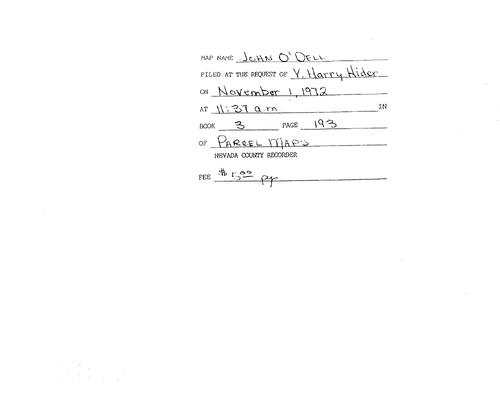 MAP NAME JOHN O'DELL
FILED AT THE REQUEST OF V. Harry Hider
ON November 1, 1972
AT 11:37 a.m IN
BOOK 3 PAGE 193
OF PARCEL MAPS
NEVADA COUNTY RECORDER
FEE $ 5.00 pg